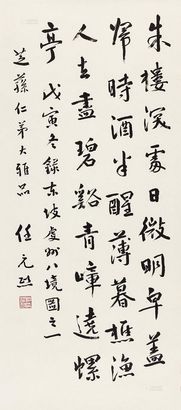 朱樓深處日微明皁蓋
歸時酒半醒薄暮樵漁
人去盡碧谿青嶂遶螺
亭 戊寅冬錄東坡虔州八境圖之一
芝蓀仁弟大雅品 任元熙